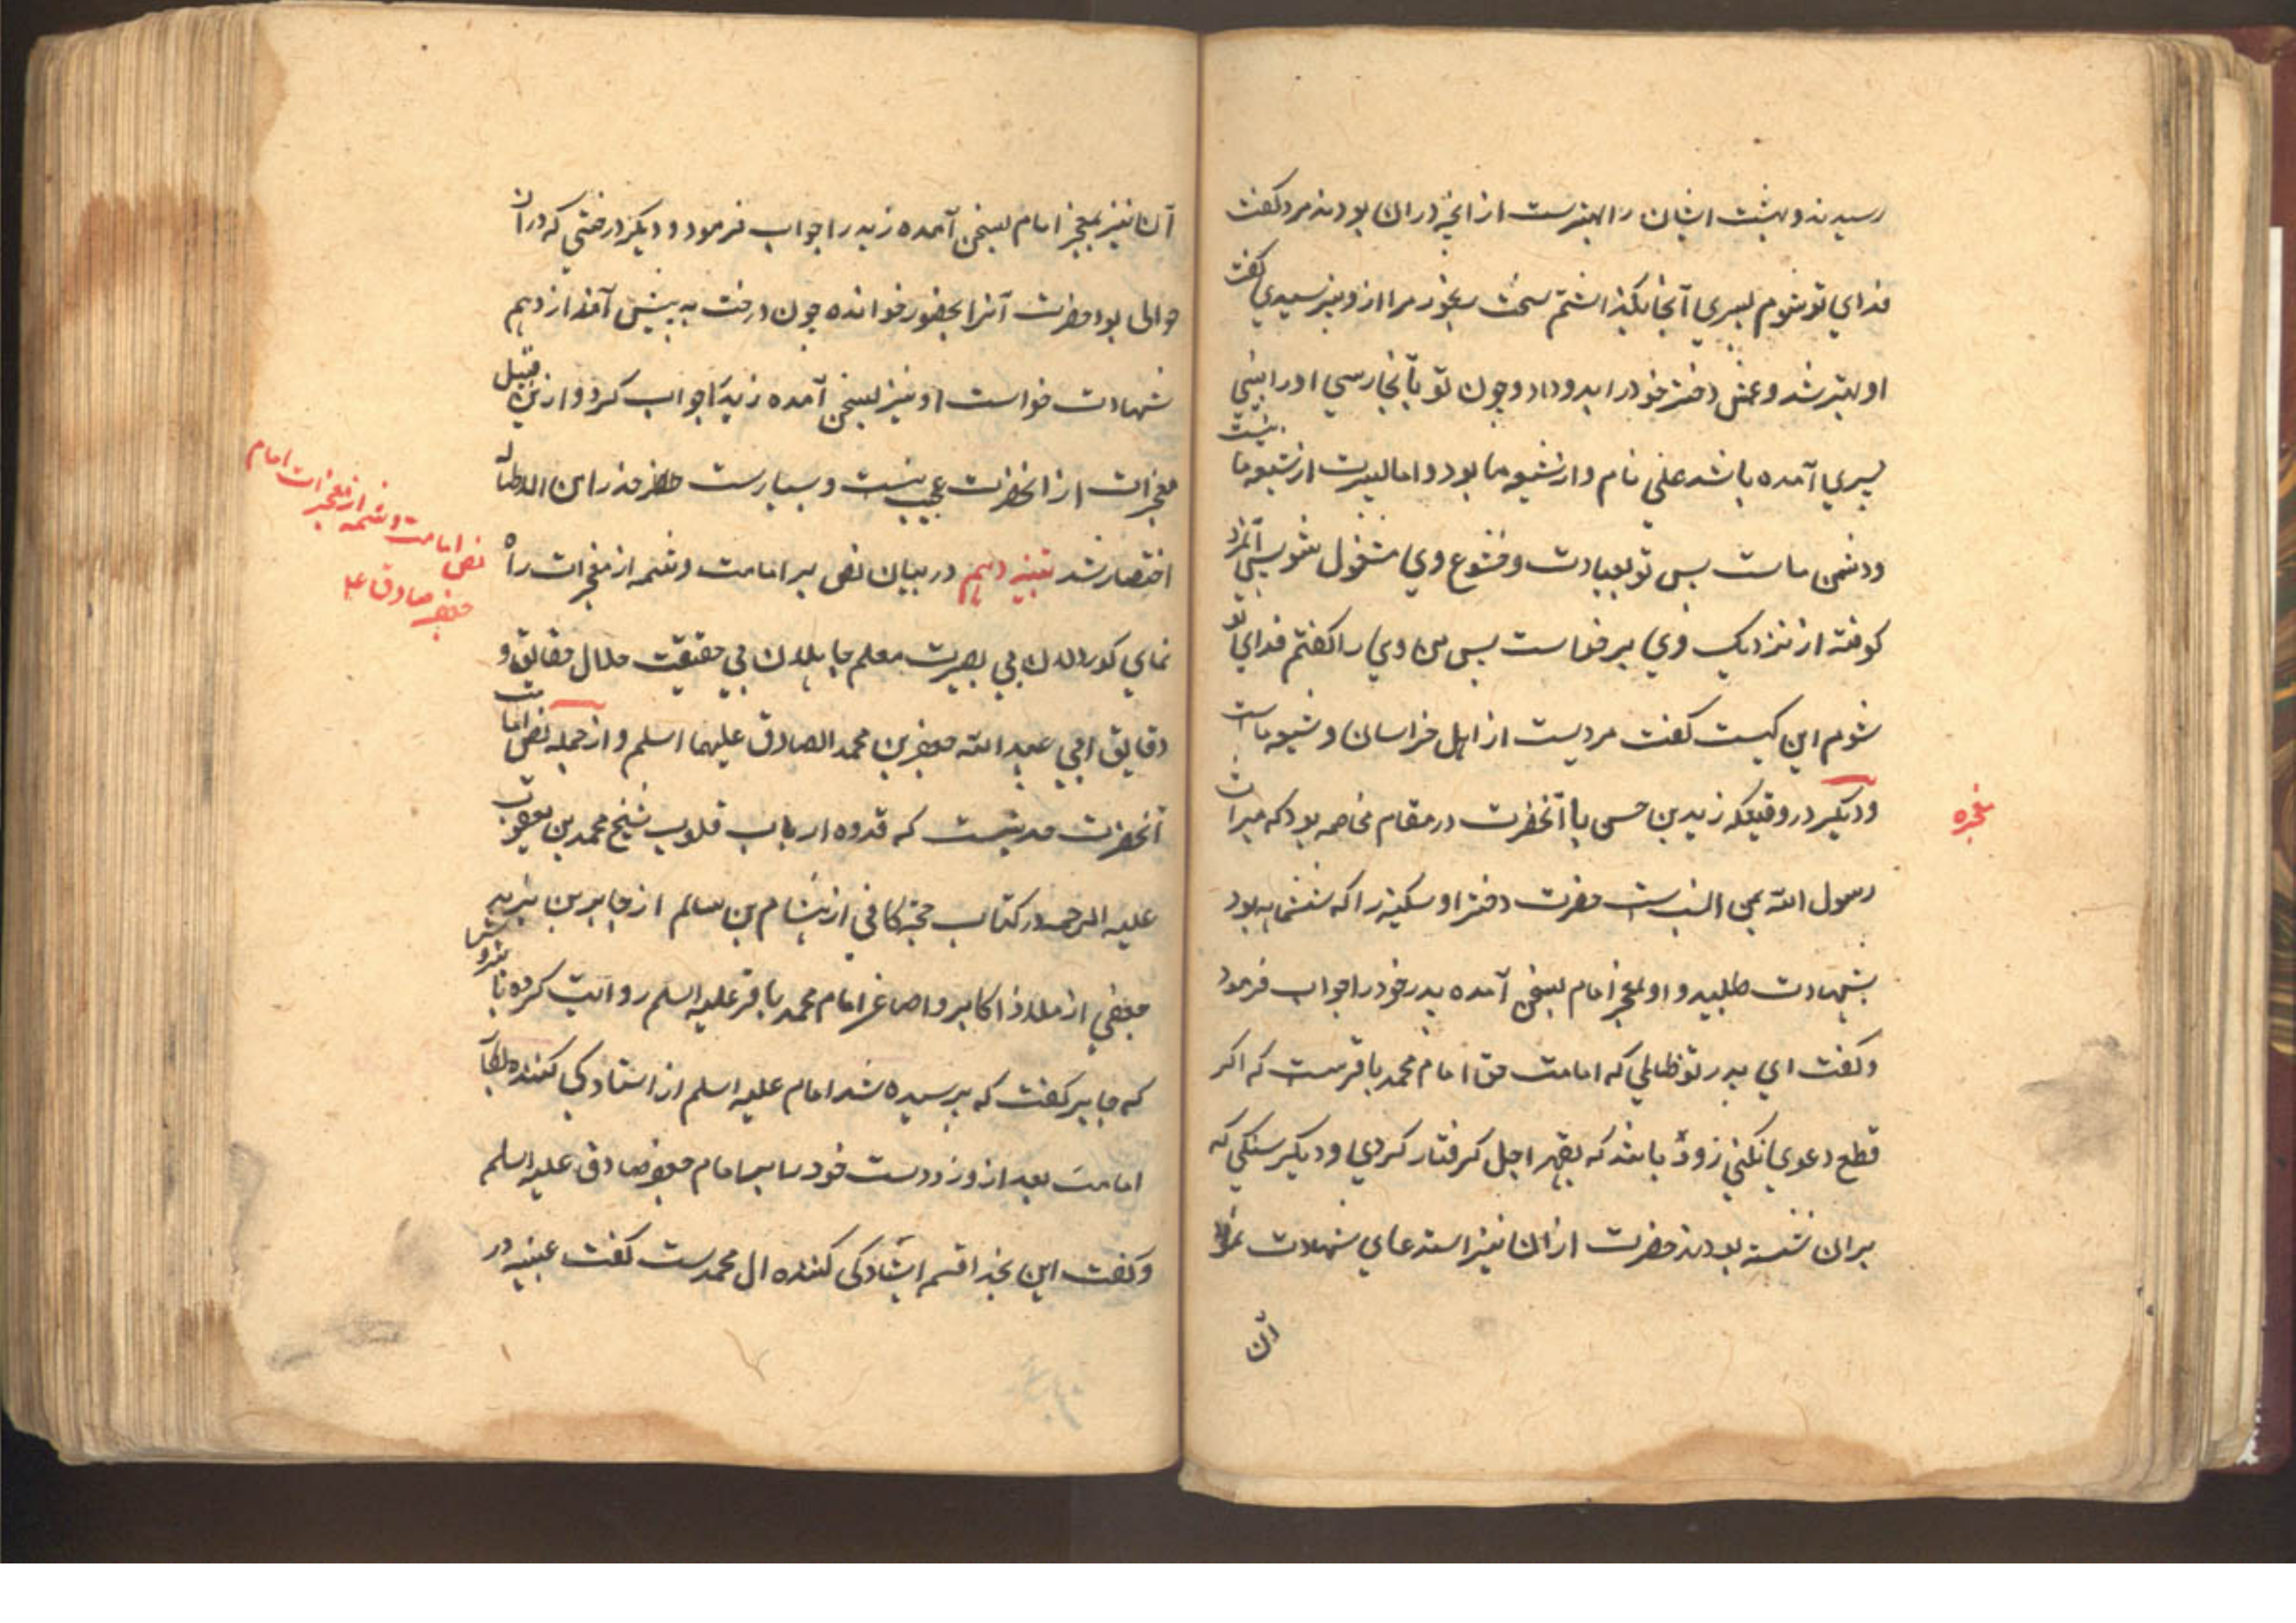 رسیدند و بهشت ایشان را بهترست از آنچه در ان بودند مرد کفت
فدای تو شوم پسری آنجا بکذاشتم سخت رنجور مرا ازو نپرسیدی کفت
او بهتر شد و عمش دختر خود را بدو داد و چون تو بآنجا رسی او را بینی
پسری آمده باشد علی نام و از شیعه ما بود و اما پسرت از شیعه ما نیست
و دشمن ماست پس تو بعبادت و خشوع وی مشغول مشو پس آنمرد
کوفته از نزدیک وی برخاست پس من وی را کفتم فدای تو
شوم این کیست کفت مردیست از اهل خراسان و شیعه ماست
و دیکر در وقتیکه زید بن حسن با آنحضرت در مقام مخاصمه بود که میراث
رسول الله بمن انسب است حضرت دختر او سکینه را که ششماهه بود
بشهادت طلبید و او بمعجز امام بسخن آمده پدر خود را جواب فرمود
و کفت ای پدر تو ظالمی که امامت حق امام محمد باقرست که اکر
قطع دعوی نکنی زود باشد که بقهر اجل کرفتار کردی و دیکر سنکی که
بر ان نشسته بودند حضرت از ان نیز استدعای شهادت نمود
آن
معجزه
آن نیز بمعجز امام بسخن آمده زید را جواب فرمود و دیکر درختی که در آن
حوالی بود حضرت آنرا بحضور خوانده چون درخت به پیش آمد از وهم
شهادت خواست او نیز بسخن آمده زید را جواب کرد و ازین قبیل
معجزات از آنحضرت عجیب نیست و بسیارست
اختصار شد تنبیه دهم در بیان نص بر امامت و شمه از معجزات راه
نمای کوردلان بی بصیرت معلم جاهلان بی حقیقت حلال حقایق و
دقایق ابی عبد الله جعفر بن محمد الصادق علیهما السلم و از جمله نص امامت
آنحضرت حدیثیست که قدوه ارباب قلوب شیخ محمد بن یعقوب
علیه الرحمه در کتاب حجه کافی از هشام بن سالم از جابر بن یزید
جعفی از ملاذ اکابر و اصاغر امام محمد باقر علیه السلم روایت کرده
که جابر کفت که پرسیده شد امام علیه السلم از استادکی کننده
امامت بعد از و زد دست خود را بر امام جعفر صادق علیه السلم
و کفت این بخدا قسم ایستادکی کننده ال محمدست کفت عنبسه در
نص امامت و شمه از معجزات امام
جعفر صادق ع